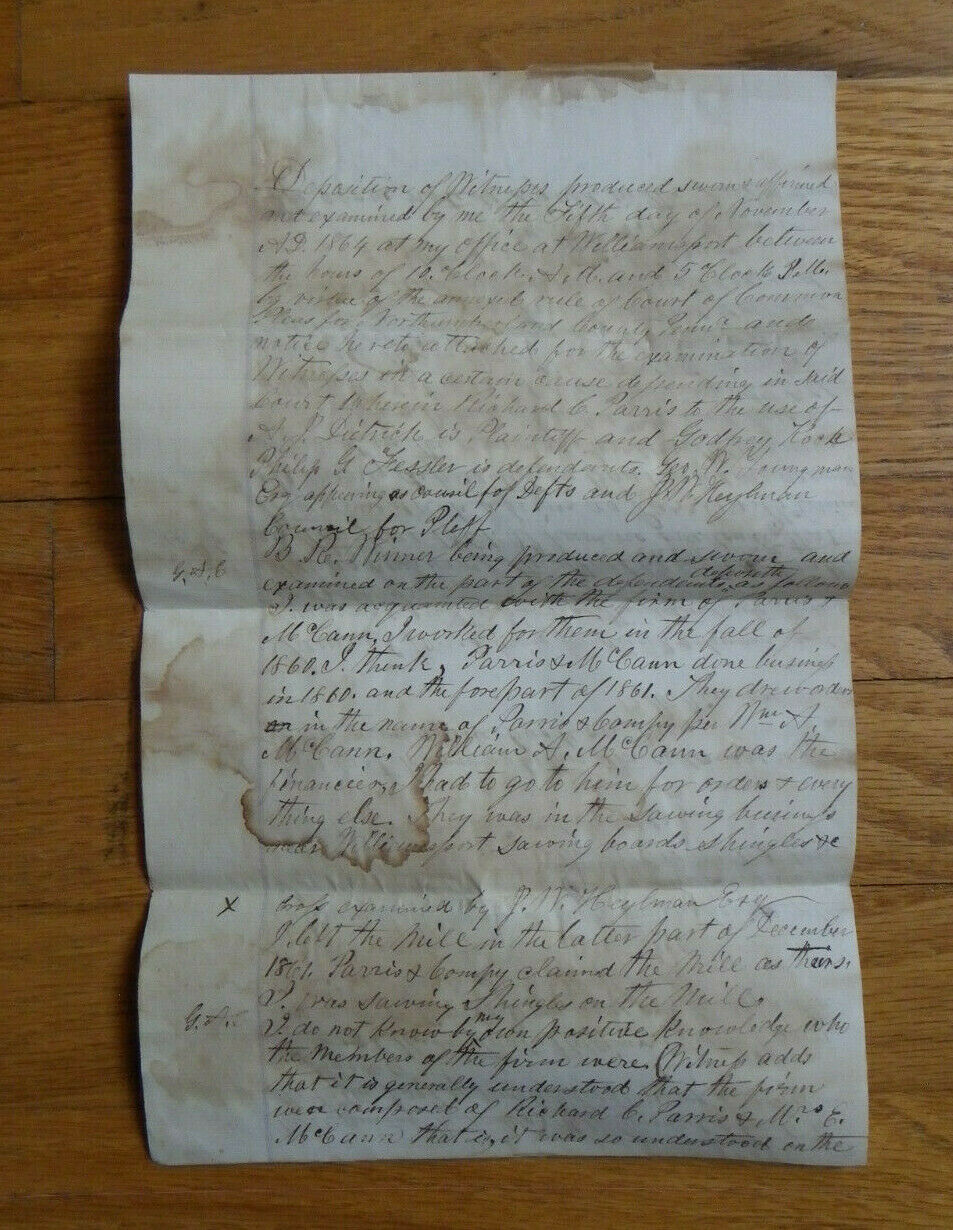 Deposition of Witnesses produced sworn & affirmed
and examined by me the Fifth day of November
A.D. 1864 at my office at Williamsport between
the hours of 10 Oclock A.M. and 5 Oclock P.M.
by virtue of the annexed rule of Court of Common
Pleas for Northumberland County Penna. and
notice hereto attached for the examination of
Witnesses on a certain cause depending in said
Court Wherein Richard C. Parris to the use of
Dietrick is Plaintiff and Godfrey
Philip G. Fessler is defendants. Geo. W. Youngman
Esq appearing as council for Defts and J.W. Heylman
Council for Plaff
B. R. being produced and sworn and
G. A. C examined on the part of the defendants deposeth as follows
I was acquainted with the firm of Parris &
McCann, I worked for them in the fall of
1860. I think, Parris & McCann done business
in 1860. and the forepart of 1861. They drew orders
in the name of Parris & Compy per Wm. A.
McCann. William A. McCann was the
financier, I had to go to him for orders & every
thing else. They was in the sawing business
near Williamsport sawing boards shingles &c
X Cross examined by J. W. Heylman Esq
I left the Mill in the latter part of December
1861. Parris & Compy claimed the Mill as theirs.
I was sawing Shingles on the Mill.
I do not know by my own positive knowledge who
the Members of the firm were. (Witness adds
that it is generally understood that the firm
were composed of Richard C. Parris & Mrs. E.
McCann that is, it was so understood on the